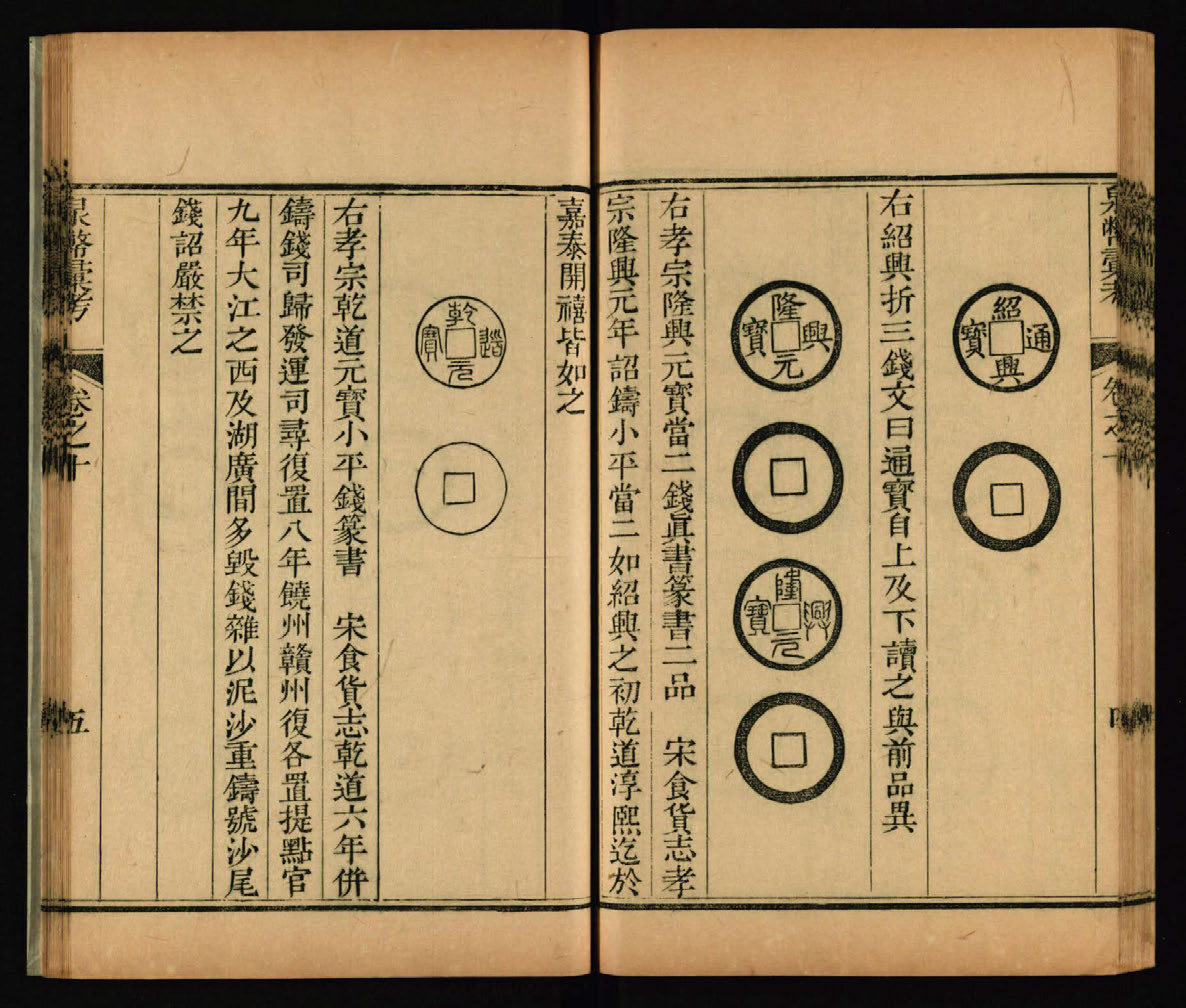 泉幣彙考
卷之十
四
紹興通寶
右紹興折三錢文曰通寶自上及下讀之與前品異
隆興元寶
隆興元寶
右孝宗隆興元寶當二錢眞書篆書二品　宋食貨志孝
宗隆興元年詔鑄小平當二如紹興之初乾道淳熙迄於
嘉泰開禧皆如之
乾道元寶
右孝宗乾道元寶小平錢篆書　宋食貨志乾道六年併
鑄錢司歸發運司尋復置八年饒州贛州復各置提點官
九年大江之西及湖廣間多毀錢雜以泥沙重鑄號沙尾
錢詔嚴禁之
泉幣彙考
卷之十
五